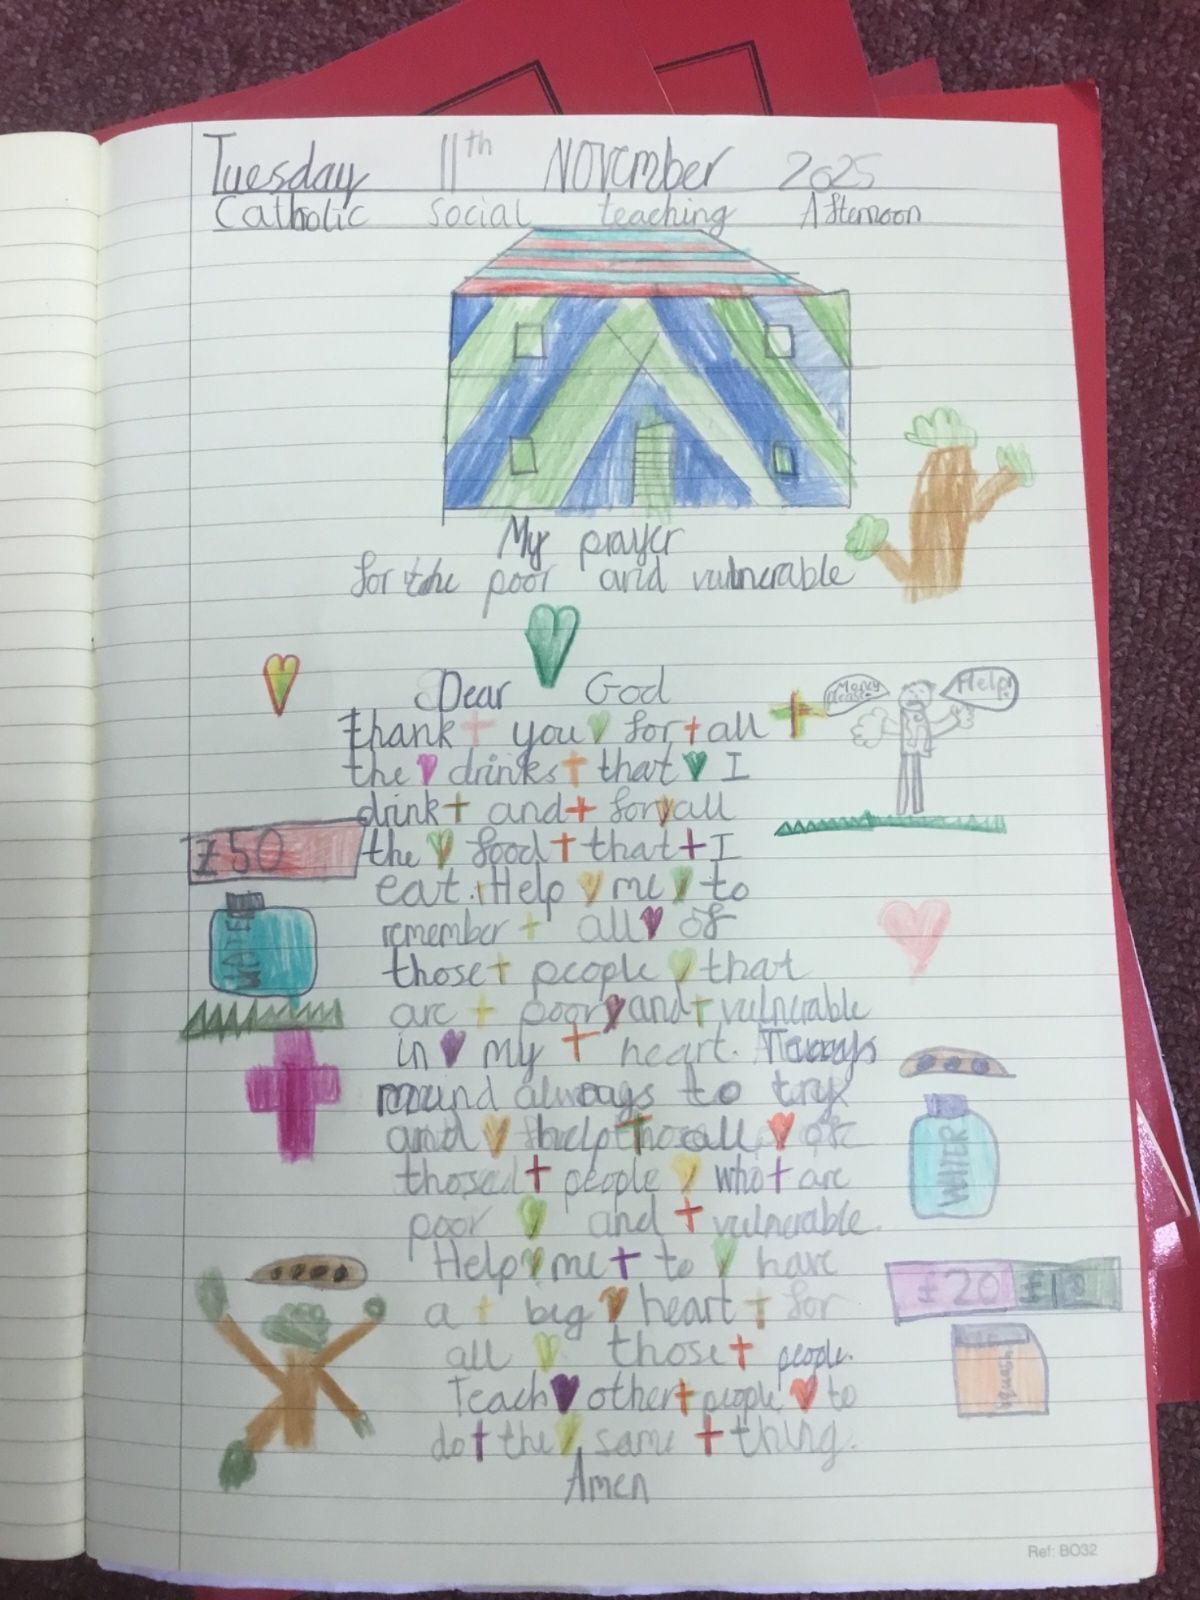 Tuesday 11th November 2025
Catholic social teaching Afternoon
My prayer
for the poor and vulnerable
Dear God
Money please
Help!
thank you for all
the drinks that I
drink and for all
£50
the food that I
eat. Help me to
remember all of
WATER
those people that
are poor and vulnerable
in my heart.
mind always to try
and help all of
WATER
those people who are
poor and vulnerable.
Help me to have
£20 £10
a big heart for
all those people.
squash
Teach other people to
do the same thing.
Amen
Ref: BO32